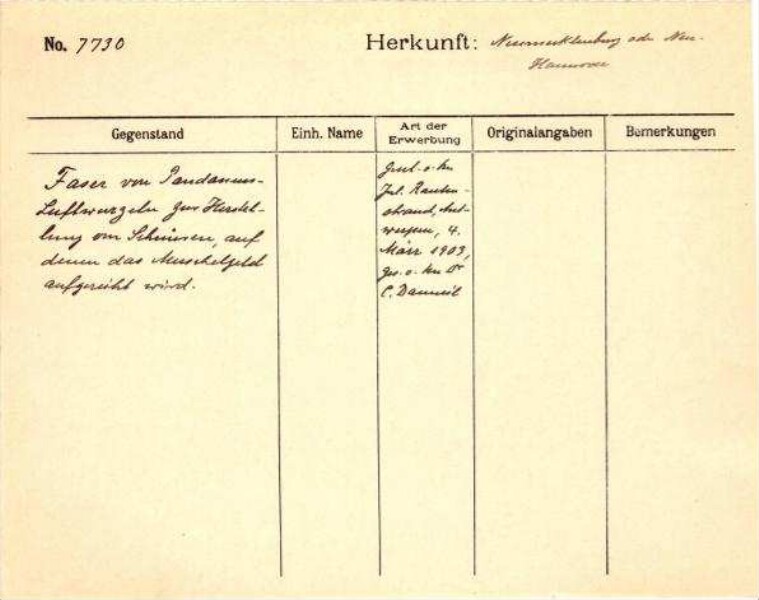 No. 7730
Herkunft: Neumecklenburg oder Neu-
Hannover
Gegenstand
Einh. Name
Art der
Erwerbung
Originalangaben
Bemerkungen
Faser von Pandanus-
Luftwurzeln zur Herstel-
lung von Schnüren, auf
denen das Muschelgeld
aufgereiht wird.
Jul. Rauten-
strauch, Ant-
werpen, 4.
März 1903,
ges. v. Hn Dr
C. Danneil